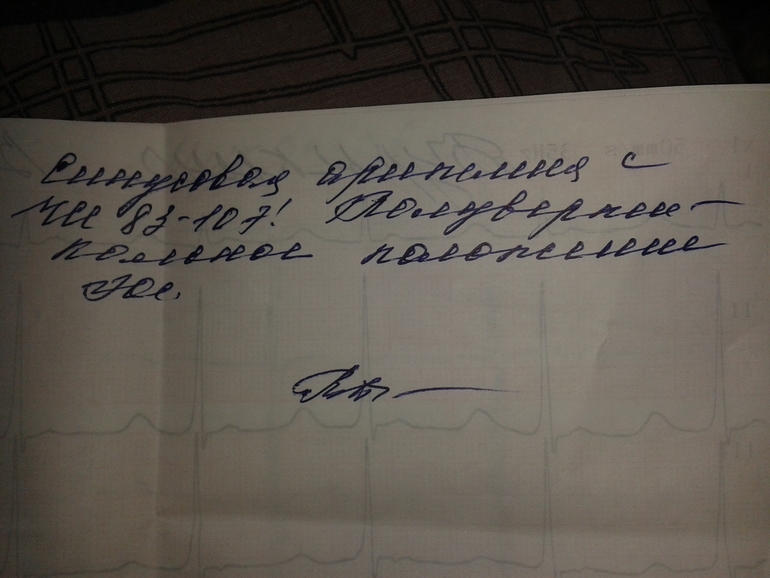 Синусовая аритмия с
ЧСС 83-107! Полуверти-
кальное положение
ЭОС.
50mm/s 35Hz